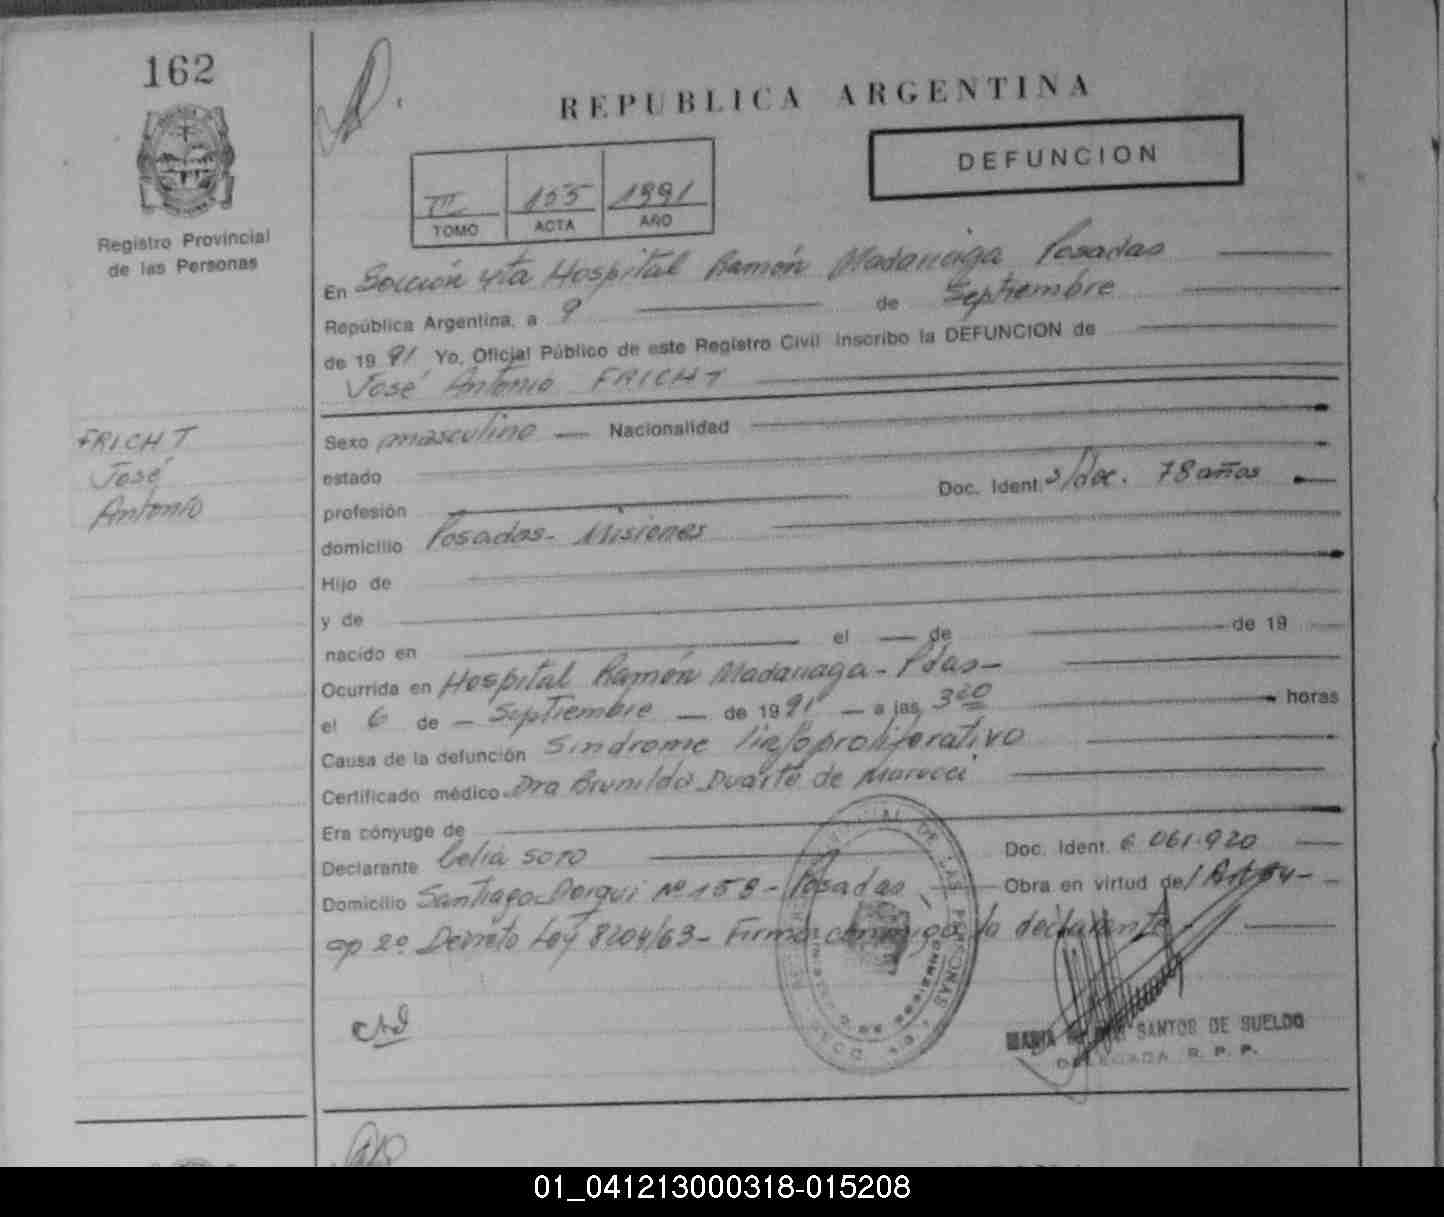 162
REPUBLICA ARGENTINA
DEFUNCION
III 155 1991
TOMO ACTA AÑO
Registro Provincial
de las Personas
En Sección 4ta Hospital Ramón Madariaga Posadas
República Argentina, a 9 de Septiembre
de 1991 Yo, Oficial Público de este Registro Civil inscribo la DEFUNCION de
José Antonio FRICHT
FRICHT
José
Antonio
Sexo masculino Nacionalidad
estado
profesión Doc. Ident. s/doc. 78 años
domicilio Posadas - Misiones
Hijo de
y de
nacido en el de de 19
Ocurrida en Hospital Ramón Madariaga - Pdas -
el 6 de Septiembre de 1991 a las 3 20 horas
Causa de la defunción Sindrome linfoproliferativo
Certificado médico Dra Brunilda Duarte de Marucci
Era cónyuge de
Declarante Celia SOTO Doc. Ident. 6 061.920
Domicilio Santiago Derqui Nº 158 - Posadas Obra en virtud de
ap 2º Decreto Ley 8204/63 - Firma conmigo la declarante
SANTOS DE SUELDO
DELEGADA R. P. P.
01_041213000318-015208